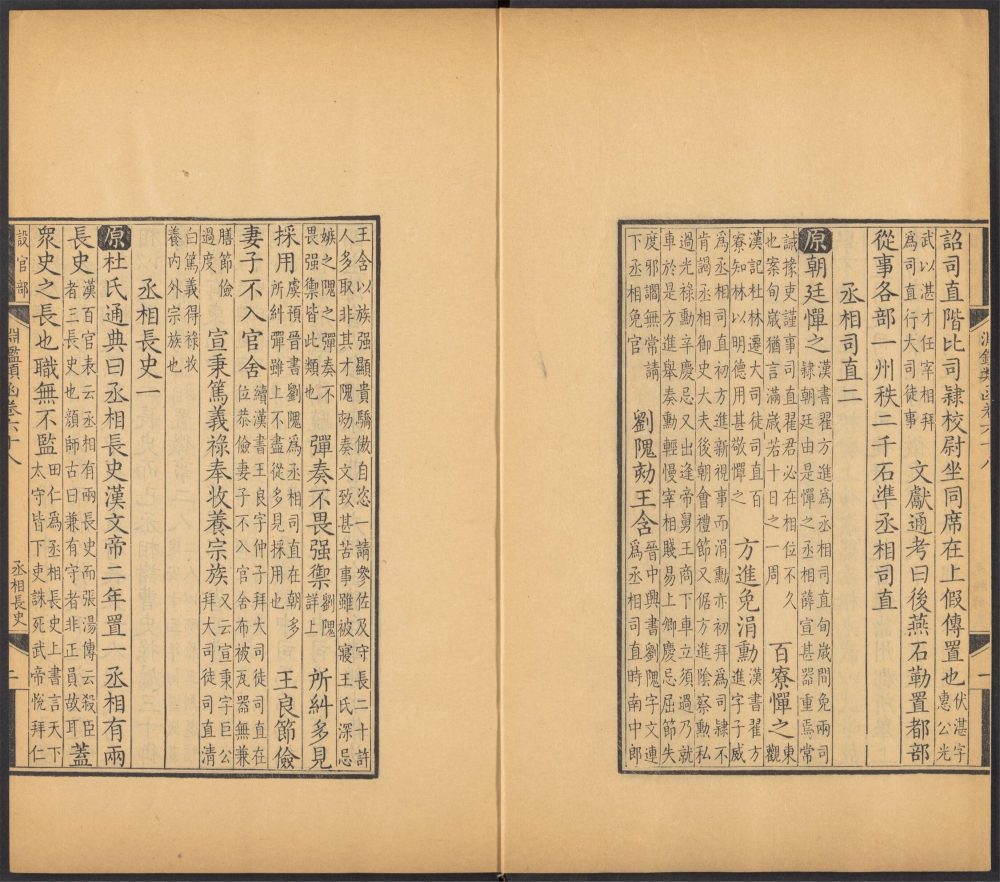 詔司直階比司隷校尉坐同席在上假傳置也伏湛字
惠公光
武以湛才任宰相拜
為司直行大司徒事
文獻通考曰後燕石勒置都部
從事各部一州秩二千石準丞相司直
丞相司直二
原朝廷憚之
漢書翟方進為丞相司直旬歲間免兩司
隷朝廷由是憚之丞相薛宣甚器重焉常
誡掾吏謹事司直翟君必在相位不久
也案旬歲猶言滿歲若十日之一周
百寮憚之東
觀
漢記杜林遷大司徒司直百
寮知林以明德用甚敬憚之
方進免涓勳漢書翟方
進字子威
為丞相司直初方進新視事而涓勳亦初拜為司隷不
肯謁丞相御史大夫後朝會禮節又倨方進陰察勳私
過光祿勳辛慶忌又出逢帝舅王商下車立須過乃就
車於是方進舉奏勳輕慢宰相賤易上卿慶忌屈節失
度邪讇無常請
下丞相免官
劉隗劾王含晉中興書劉隗字文連
為丞相司直時南中郎
王含以族强顯貴驕傲自恣一請參佐及守長二十許
人多取非其才隗劾奏文致甚苦事雖被寢王氏深忌
嫉之隗之彈奏不
畏强禦皆此類也
彈奏不畏强禦劉隗
詳上
所糾多見
採用虞預晉書劉隗為丞相司直在朝多
所糾彈雖上不盡從多見採用也
王良節儉
妻子不入官舍續漢書王良字仲子拜大司徒司直在
位恭儉妻子不入官舍布被瓦器無兼
膳節儉
過度
宣秉篤義祿奉收養宗族又云宣秉字巨公
拜大司徒司直清
白篤義得祿收
養內外宗族也
丞相長史一
原杜氏通典曰丞相長史漢文帝二年置一丞相有兩
長史漢百官表云丞相有兩長史而張湯傳云殺臣
者三長史也顔師古曰兼有守者非正員故耳
蓋
衆史之長也職無不監田仁為丞相長史上書言天下
太守皆下吏誅死武帝悅拜仁
設官部
淵鑑類函卷六十八
丞相長史
二